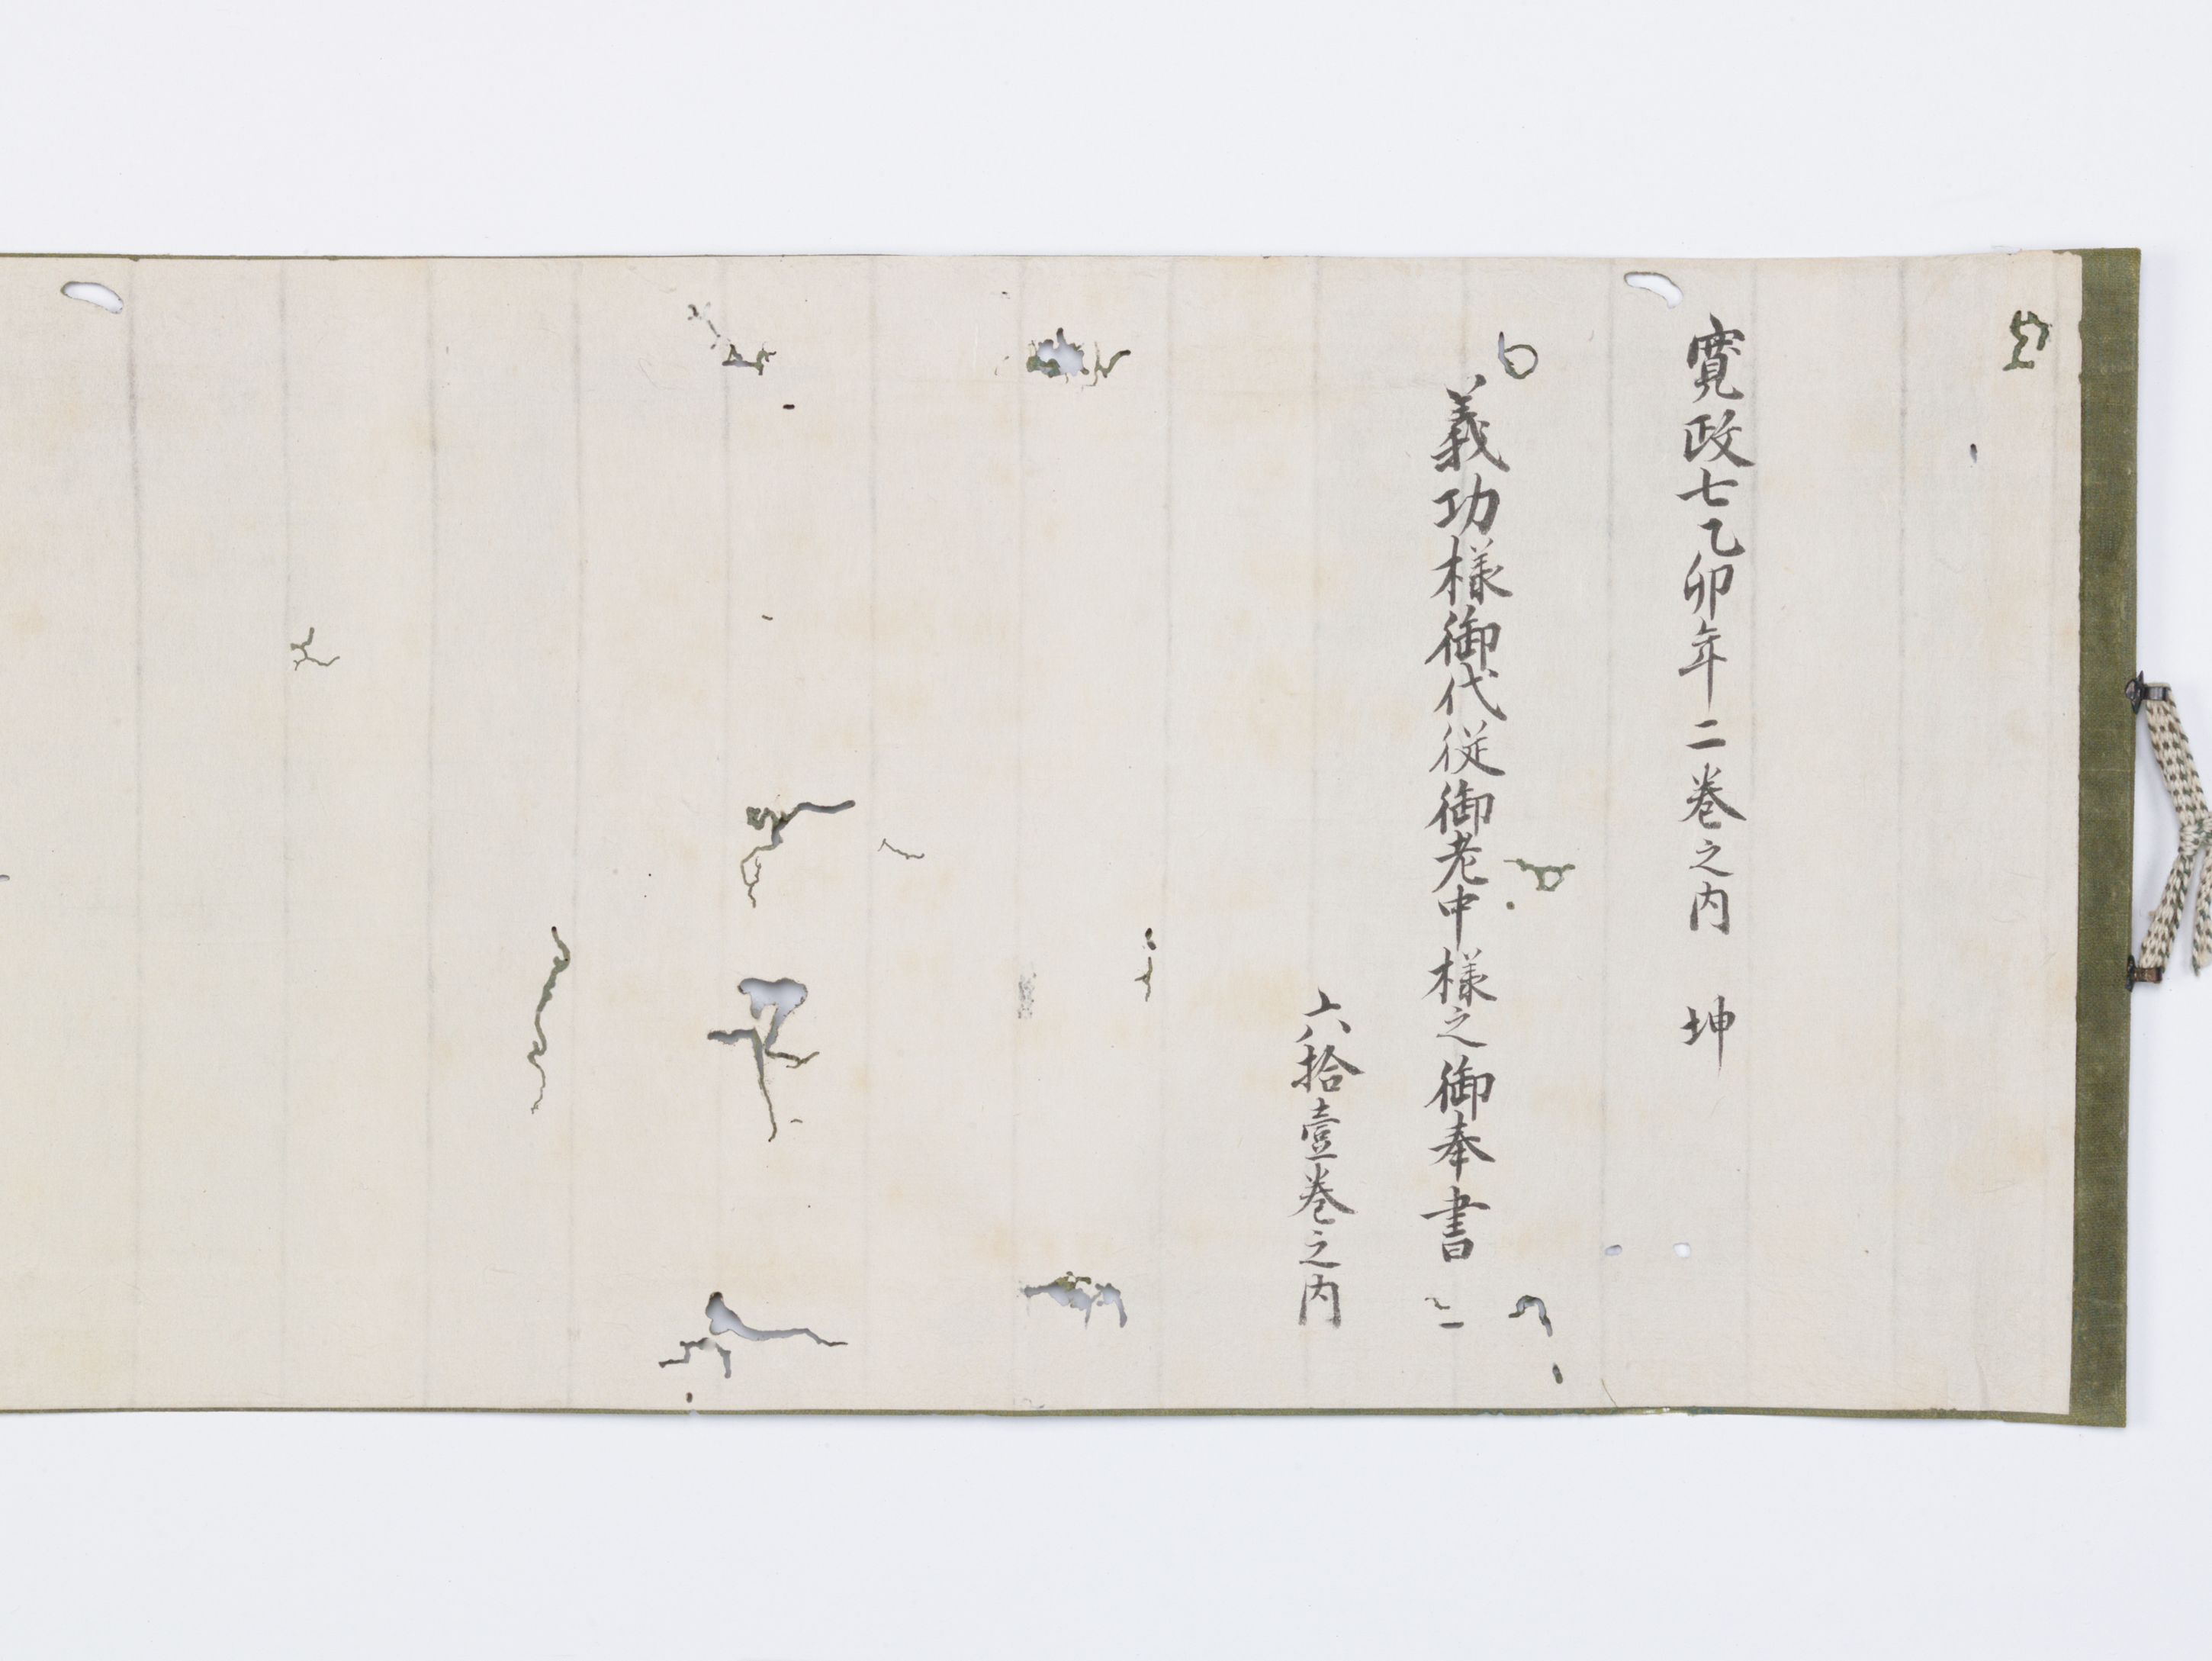 寛政七乙卯年二巻之内　坤
義功様御代従御老中様之御奉書
六拾壹巻之内